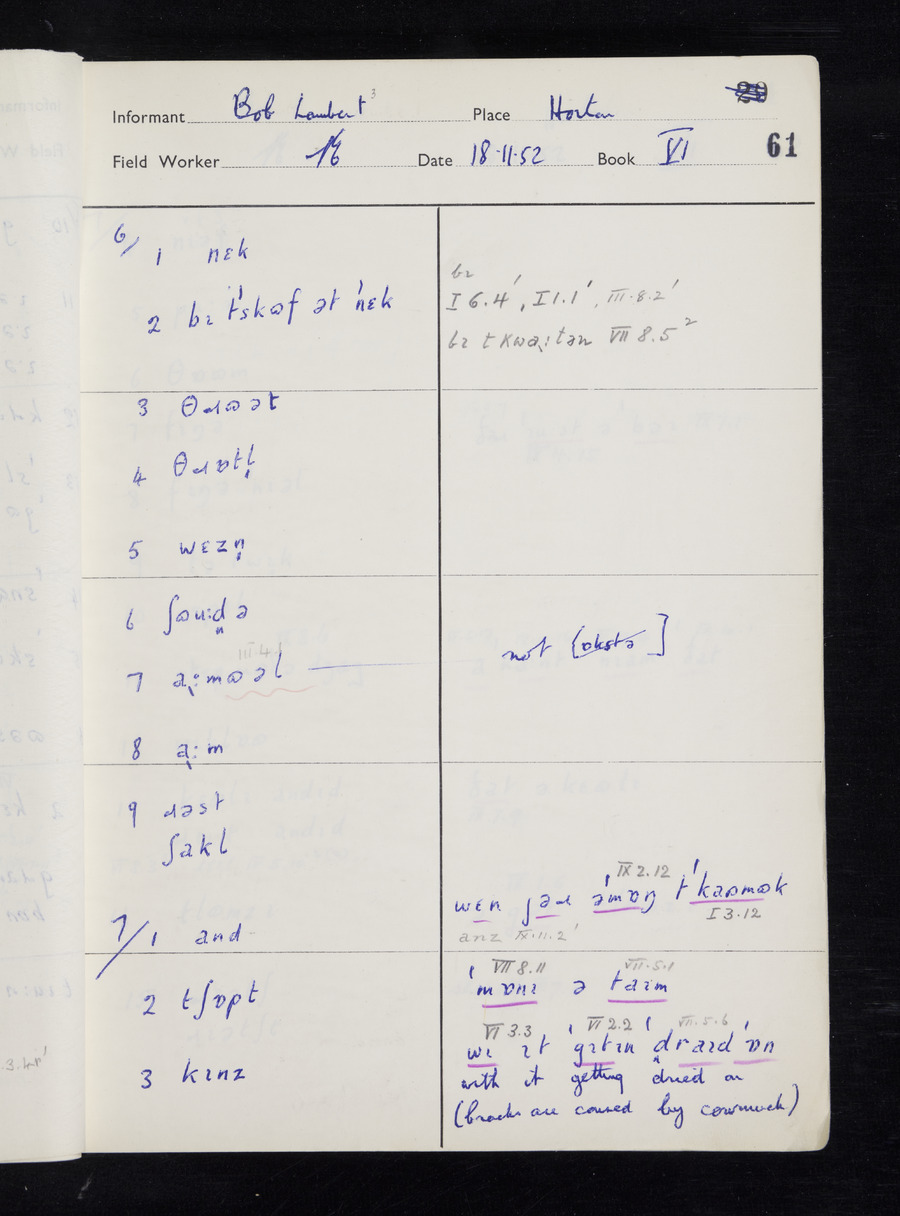 Informant Bob Lambert 3 Place Horton
Field Worker Date 18·11·52 Book VI 61
6/ 1 nɛk
2 bɪ t'skɒf ət 'nɛk
bɪ
I 6.4', II.1', III·8.2'
bɪ t kwa̜:tən VII 8.5²
3 θɹɒət
4 θɹɒtl̩
5 wɛzn̩
6 ʃɒu:də
III·4
7 a̜:mɒəl
not [ɒkstə]
8 a̜:m
9 ɹəst
ʃakl
7/ 1 and
IX 2.12
wɛn jəɹ ə'mɒŋ t'kaʊmʊk
I 3.12
anz IX·11.2'
2 tʃɒpt
VII 8.11 VII·5·1
'mɒnɪ ə taɪm
3 kɪnz
VI 3.3 VI 2.2 VII·5·6
wɪ ɪt 'gɪtɪn 'draɪd 'ɒn
with it getting dried on
(bracks are caused by cowmuck)